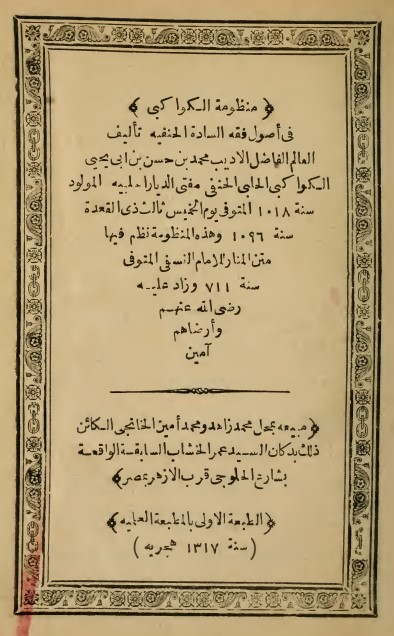 ﴿ منظومة الكواكبى ﴾
فى أصول فقه السادة الحنفيه تأليف
العالم الفاضل الاديب محمد بن حسن بن ابى يحيى
الكواكبى الحلبى الحنفى مفتى الديار الحلبيه المولود
سنة ١٠١٨ المتوفى يوم الخميس ثالث ذى القعدة
سنة ١٠٩٦ وهذه المنظومة نظم فيها
متن المنار للامام النسفى المتوفى
سنة ٧١١ وزاد عليه
رضى الله عنهم
وأرضاهم
آمين
﴿ مبيعه بمحل محمد زاهد ومحمد أمين الخانجى الكائن
ذلك بدكان السيد عمر الخشاب السابقة الواقعة
بشارع الحلوجى قرب الازهر بمصر ﴾
﴿ الطبعة الاولى بالمطبعة العلميه ﴾
( سنة ١٣١٧ هجريه )